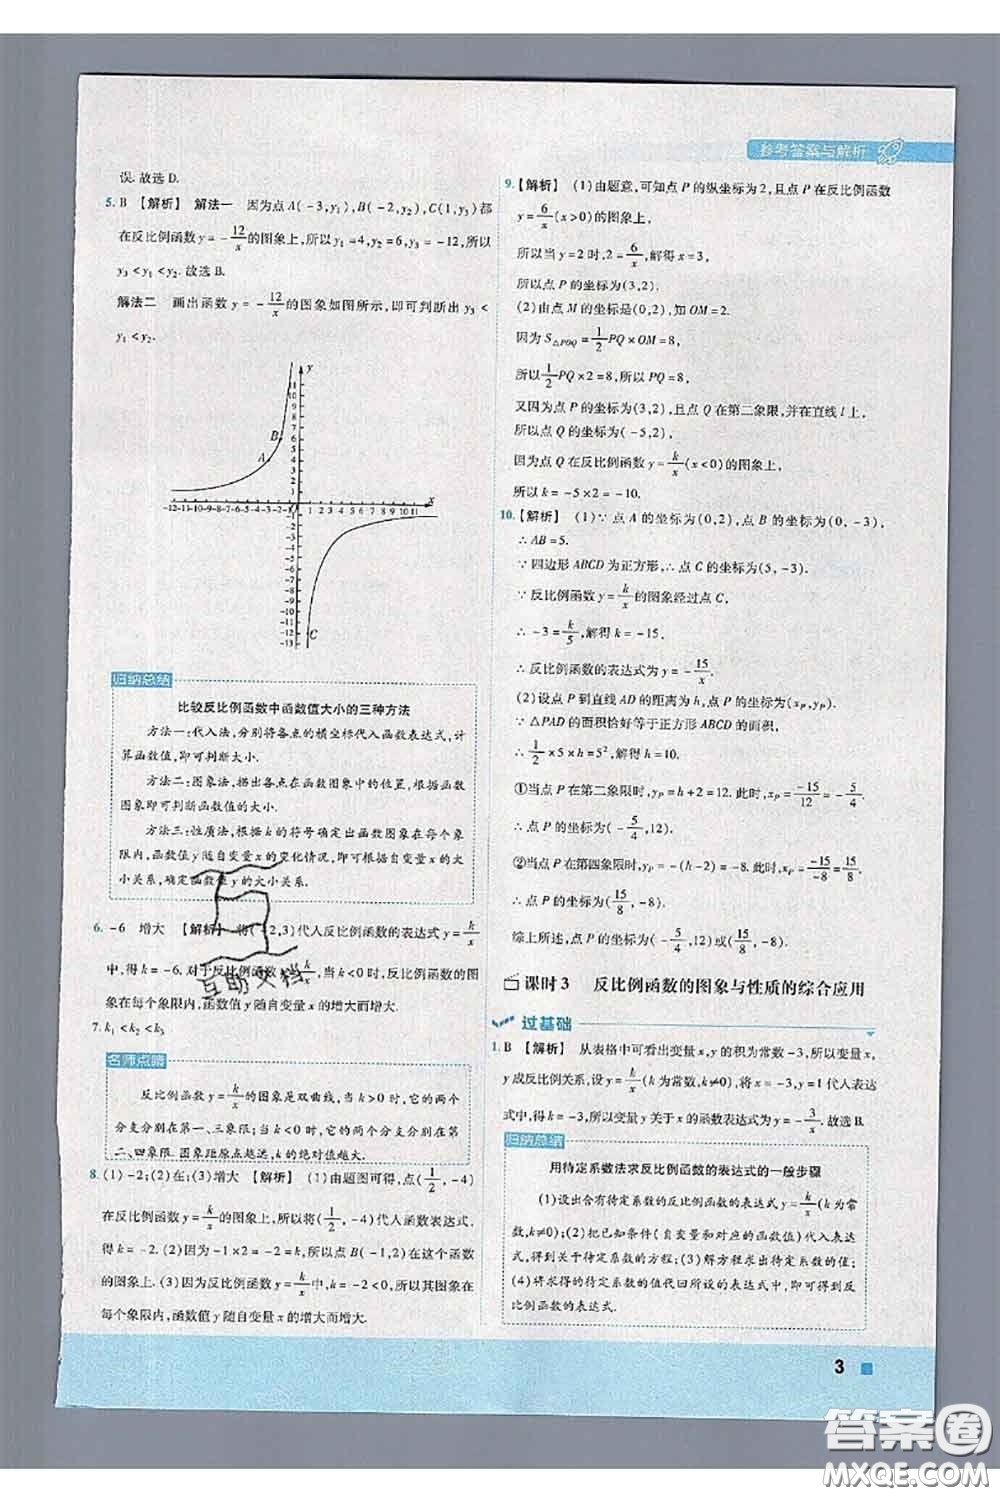 参考答案与解析
误. 故选 D.
5. B 【解析】 解法一 因为点 A(-3,y₁),B(-2,y₂),C(1,y₃)都
在反比例函数 y = -12/x 的图象上,所以 y₁ = 4,y₂ = 6,y₃ = -12,所以
y₃ < y₁ < y₂. 故选 B.
解法二 画出函数 y = -12/x 的图象如图所示,即可判断出 y₃ <
y₁ < y₂.
归纳总结
比较反比例函数中函数值大小的三种方法
方法一:代入法,分别将各点的横坐标代入函数表达式,计
算函数值,即可判断大小.
方法二:图象法,描出各点在函数图象中的位置,根据函数
图象即可判断函数值的大小.
方法三:性质法,根据 k 的符号确定出函数图象在每个象
限内,函数值 y 随自变量 x 的变化情况,即可根据自变量 x 的大
小关系,确定函数值 y 的大小关系.
6. -6 增大 【解析】 将(-2,3)代入反比例函数的表达式 y = k/x
中,得 k = -6,对于反比例函数 y = k/x,当 k < 0 时,反比例函数的图
象在每个象限内,函数值 y 随自变量 x 的增大而增大.
7. k₁ < k₂ < k₃
名师点睛
反比例函数 y = k/x 的图象是双曲线,当 k > 0 时,它的两个
分支分别在第一、三象限;当 k < 0 时,它的两个分支分别在第
二、四象限. 图象距原点越远,k 的绝对值越大.
8. (1) -2;(2)在;(3)增大 【解析】 (1)由题图可得,点(1/2, -4)
在反比例函数 y = k/x 的图象上,所以将(1/2, -4)代入函数表达式,
得 k = -2. (2)因为 -1×2 = -2,所以点 B(-1,2)在这个函数
的图象上. (3)因为反比例函数 y = k/x 中,k = -2 < 0,所以其图象在
每个象限内,函数值 y 随自变量 x 的增大而增大.
9. 【解析】 (1)由题意,可知点 P 的纵坐标为 2,且点 P 在反比例函数
y = 6/x (x > 0)的图象上,
所以当 y = 2 时,2 = 6/x,解得 x = 3,
所以点 P 的坐标为(3,2).
(2)由点 M 的坐标是(0,2),知 OM = 2.
因为 S△POQ = 1/2 PQ × OM = 8,
所以 1/2 PQ × 2 = 8,所以 PQ = 8,
又因为点 P 的坐标为(3,2),且点 Q 在第二象限,并在直线 l 上,
所以点 Q 的坐标为(-5,2),
因为点 Q 在反比例函数 y = k/x (x < 0)的图象上,
所以 k = -5×2 = -10.
10. 【解析】 (1)∵ 点 A 的坐标为(0,2),点 B 的坐标为(0, -3),
∴ AB = 5.
∵ 四边形 ABCD 为正方形,∴ 点 C 的坐标为(5, -3).
∵ 反比例函数 y = k/x 的图象经过点 C,
∴ -3 = k/5,解得 k = -15,
∴ 反比例函数的表达式为 y = -15/x.
(2)设点 P 到直线 AD 的距离为 h,点 P 的坐标为(xP,yP).
∵ △PAD 的面积恰好等于正方形 ABCD 的面积,
∴ 1/2 × 5 × h = 5²,解得 h = 10.
①当点 P 在第二象限时,yP = h + 2 = 12. 此时,xP = -15/12 = -5/4.
∴ 点 P 的坐标为(-5/4,12).
②当点 P 在第四象限时,yP = -(h-2) = -8. 此时,xP = -15/-8 = 15/8.
∴ 点 P 的坐标为(15/8, -8).
综上所述,点 P 的坐标为(-5/4,12)或(15/8, -8).
课时3 反比例函数的图象与性质的综合应用
过基础
1. B 【解析】 从表格中可看出变量 x,y 的积为常数 -3,所以变量 x,
y 成反比例关系,设 y = k/x (k 为常数,k≠0),将 x = -3,y = 1 代入表达
式中,得 k = -3,所以变量 y 关于 x 的函数表达式为 y = -3/x. 故选 B.
归纳总结
用待定系数法求反比例函数的表达式的一般步骤
(1)设出含有待定系数的反比例函数的表达式 y = k/x (k 为常
数,k≠0);(2)把已知条件(自变量和对应的函数值)代入表达
式,得到关于待定系数的方程;(3)解方程求出待定系数的值;
(4)将求得的待定系数的值代回所设的表达式中,即可得到反
比例函数的表达式.
3
互助文档
答案圈
MXQE.COM